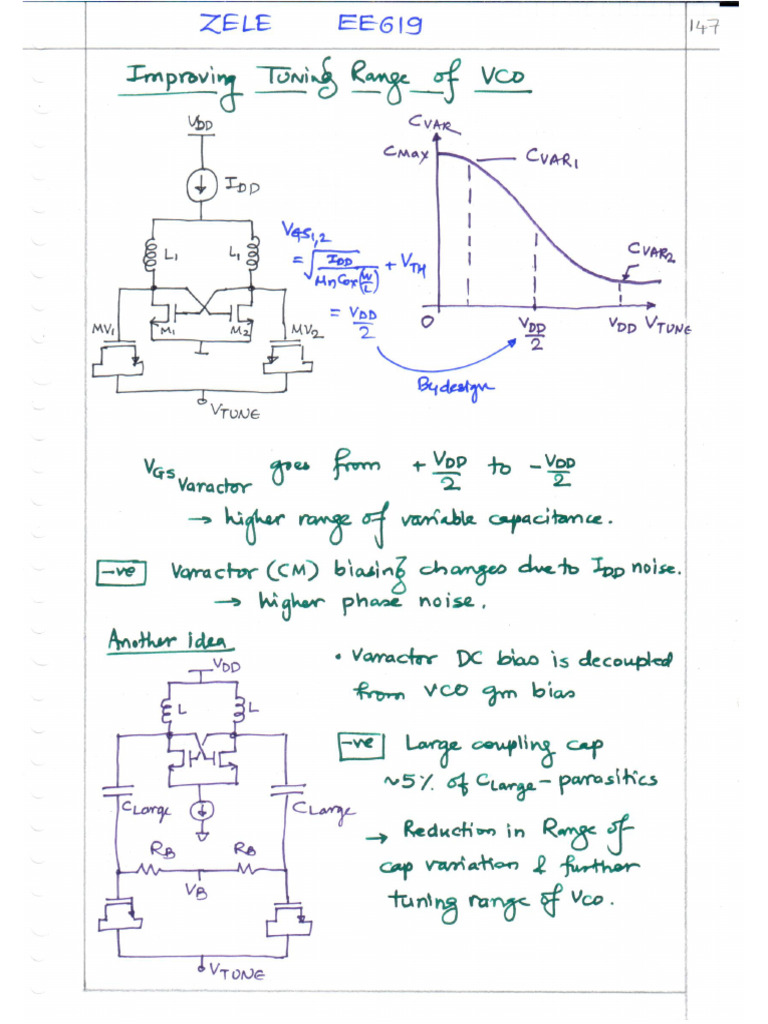 ZELE EE619
147
Improving Tuning Range of VCO
VDD
IDD
L1 L1
MV1 M1 M2 MV2
VTUNE
VGS1,2
= √(IDD / (μn Cox (W/L))) + VTH
= VDD/2
By design
CVAR
CMax
CVAR1
CVAR2
0 VDD/2 VDD VTUNE
VGS Varactor goes from + VDD/2 to - VDD/2
→ higher range of variable capacitance.
-ve Varractor (CM) biasing changes due to IDD noise.
→ higher phase noise.
Another idea
VDD
L L
CLarge CLarge
RB RB
VB
VTUNE
• Varractor DC bias is decoupled
from VCO gm bias
-ve Large coupling cap
~5% of CLarge - parasitics
→ Reduction in Range of
cap variation & further
tuning range of VCO.